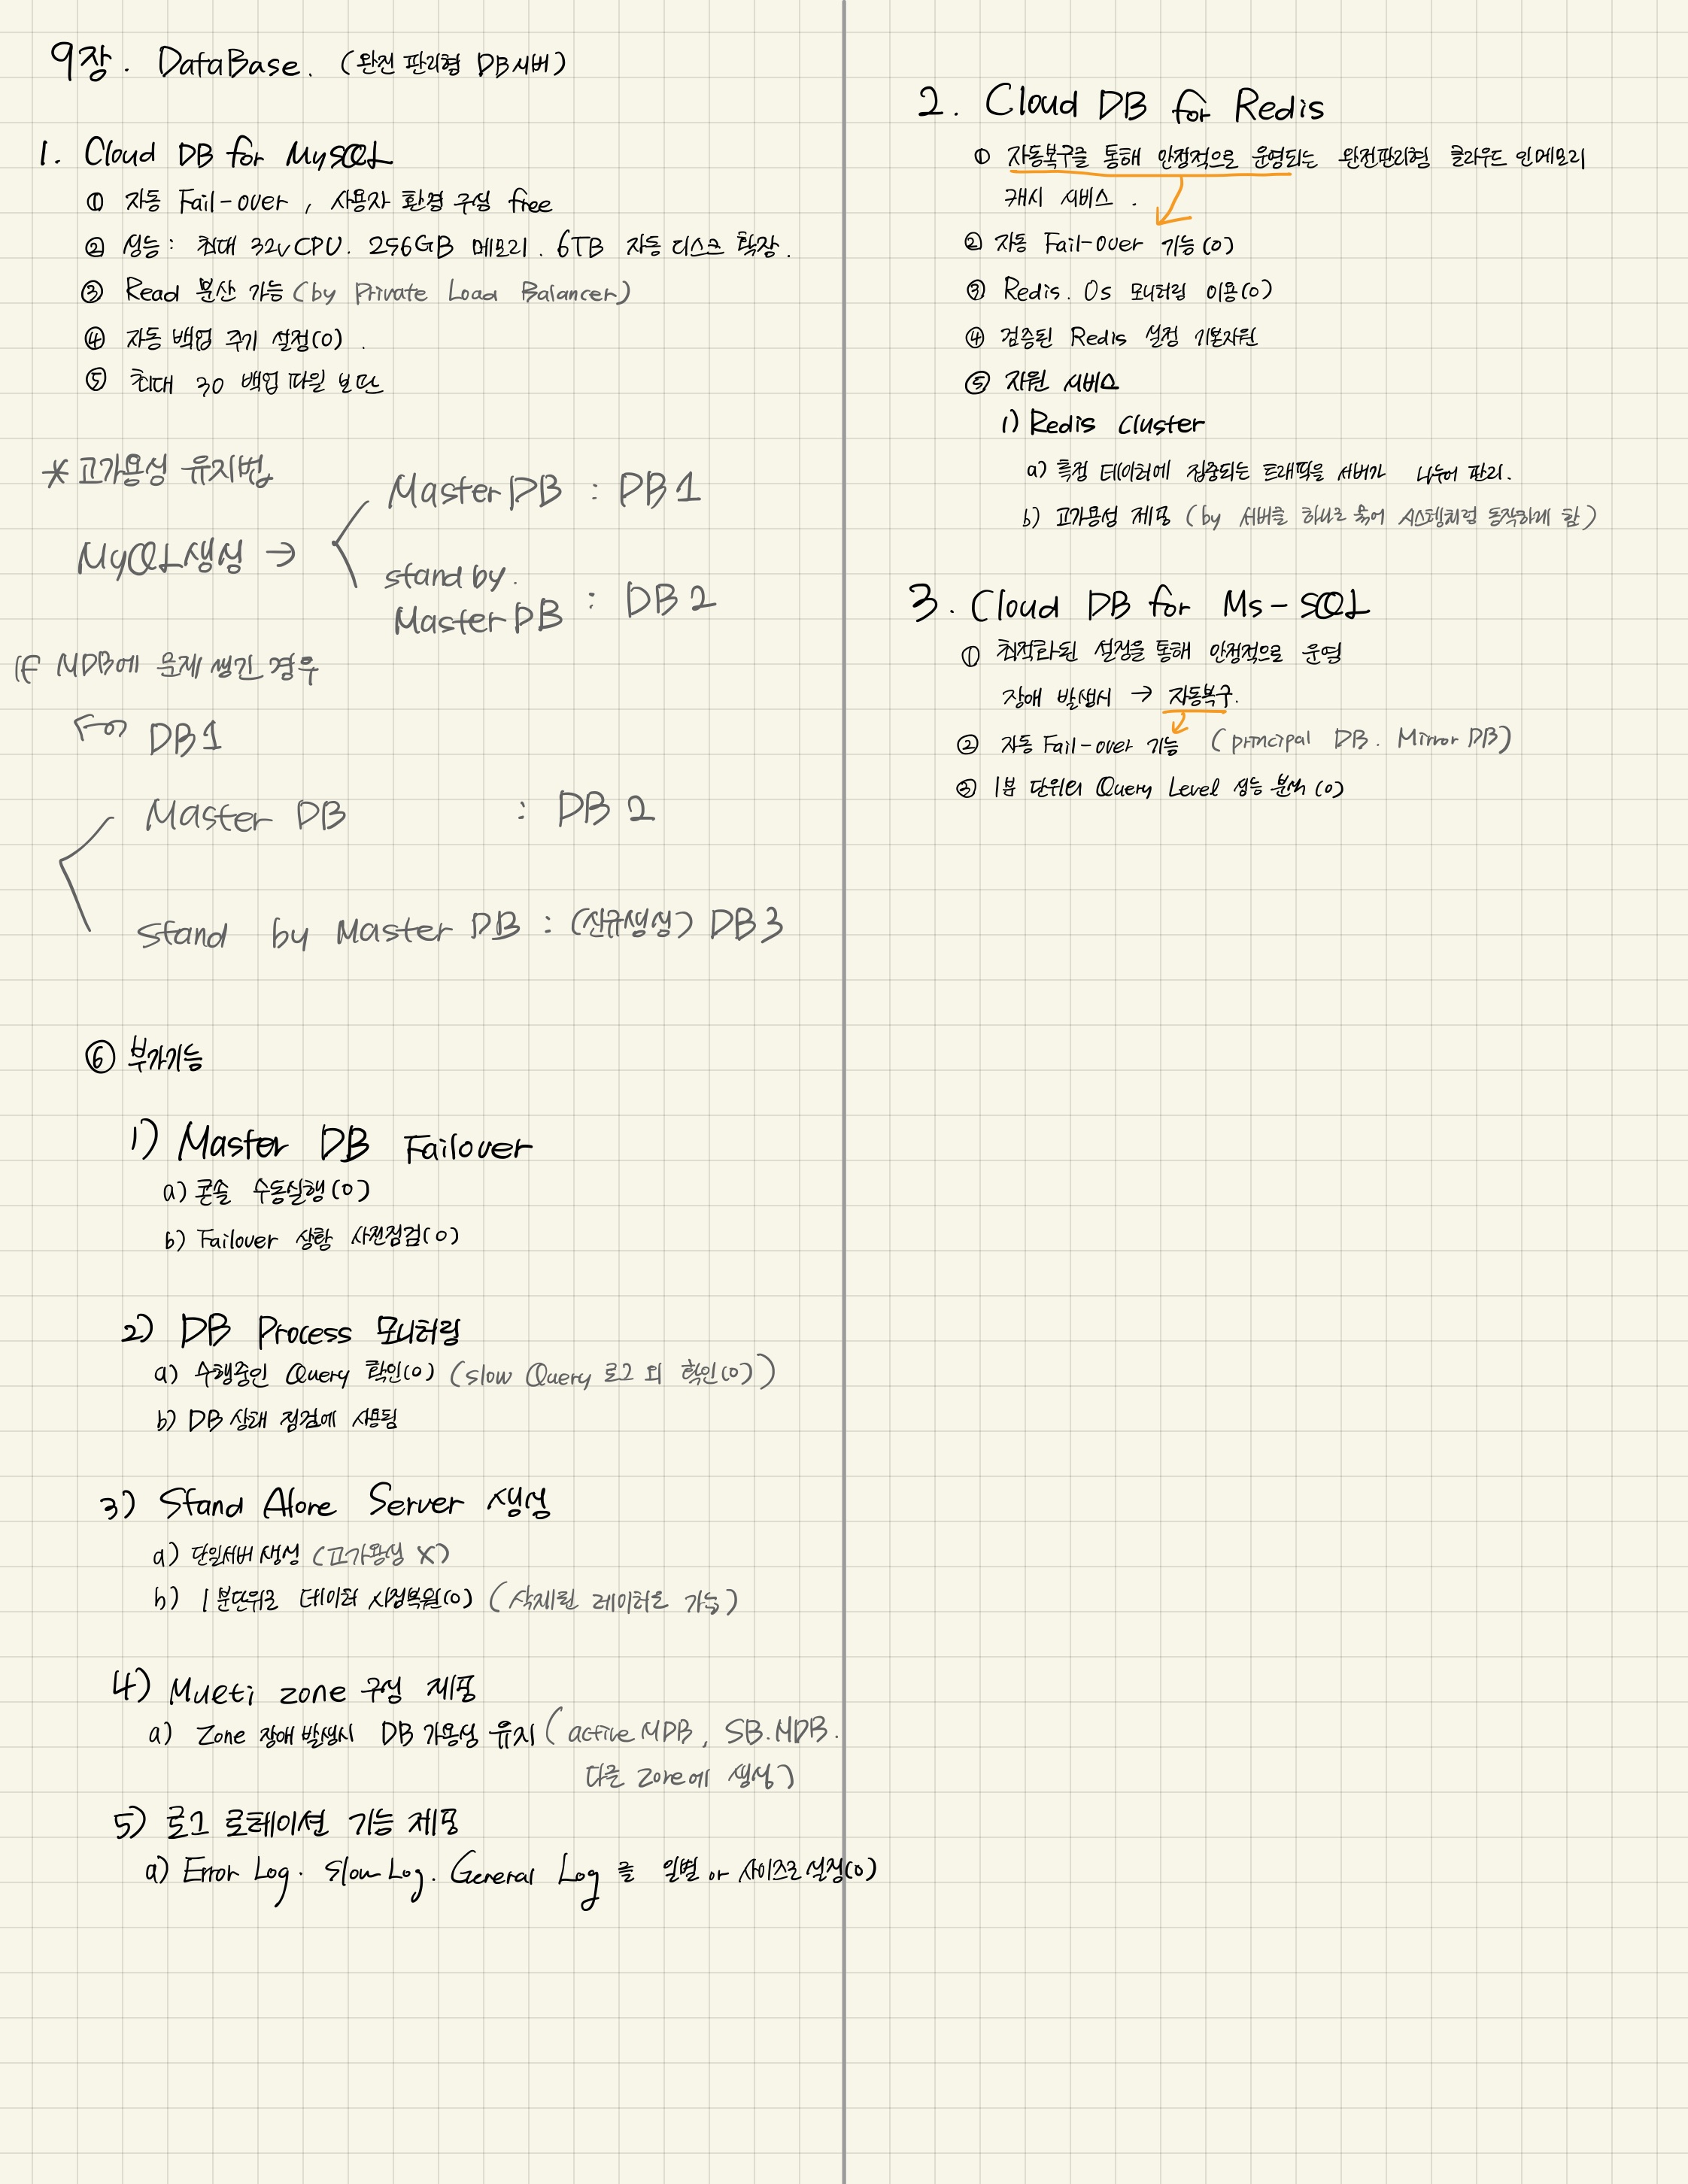 9장. DataBase. (완전 관리형 DB서버)
1. Cloud DB for MySQL
① 자동 Fail-over, 사용자 환경 구성 free
② 성능: 최대 32vCPU. 256GB 메모리. 6TB 자동 디스크 확장.
③ Read 분산 가능 (by Private Load Balancer)
④ 자동 백업 주기 설정(O).
⑤ 최대 30 백업 파일 보관
* 고가용성 유지법
MyQL생성 →
MasterDB : DB1
stand by.
MasterDB : DB2
If MDB에 문제 생긴 경우
DB1
Master DB : DB2
Stand by Master DB : (신규생성) DB3
⑥ 부가기능
1) Master DB Failover
a) 콘솔 수동실행(O)
b) Failover 상황 사전점검(O)
2) DB Process 모니터링
a) 수행중인 Query 확인(O) (slow Query 로그 외 확인(O))
b) DB 상태 점검에 사용됨
3) Stand Alone Server 생성
a) 단일서버 생성 (고가용성 X)
b) 1분단위로 데이터 시점복원(O) (삭제된 데이터도 가능)
4) Mueti zone 구성 제공
a) Zone 장애 발생시 DB 가용성 유지 (active MDB, SB.MDB.
다른 Zone에 생성)
5) 로그 로테이션 기능 제공
a) Error Log. Slow Log. General Log 를 일별 or 사이즈로 설정(O)
2. Cloud DB for Redis
① 자동복구를 통해 안정적으로 운영되는 완전관리형 클라우드 인메모리
캐시 서비스.
② 자동 Fail-over 기능(O)
③ Redis. Os 모니터링 이용(O)
④ 검증된 Redis 설정 기본지원
⑤ 지원 서비스
1) Redis Cluster
a) 특정 데이터에 집중되는 트래픽을 서버가 나누어 관리.
b) 고가용성 제공 (by 서버를 하나로 묶어 시스템처럼 동작하게 함)
3. Cloud DB for Ms-SQL
① 최적화된 설정을 통해 안정적으로 운영
장애 발생시 → 자동복구.
② 자동 Fail-over 기능 (principal DB. Mirror DB)
③ 1분 단위의 Query Level 성능 분석(O)